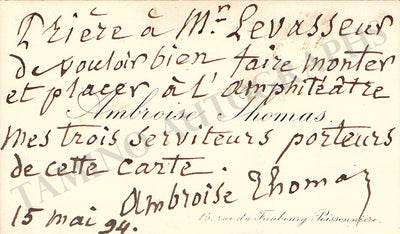 Prière à Mr. Levasseur
de vouloir bien faire monter
et placer à l'amphitéâtre
Ambroise Thomas.
mes trois serviteurs porteurs
de cette carte.
Ambroise Thomas
15 mai 94.
15, rue du Faubourg Poissonnière.
TAMINO AUTOGRAPHS